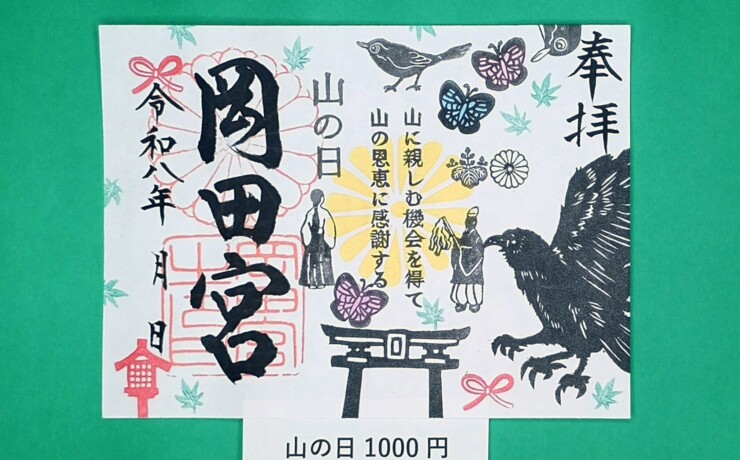 奉拝
山の日
山に親しむ機会を得て
山の恩恵に感謝する
岡田宮
令和八年 月 日
山の日 1000 円